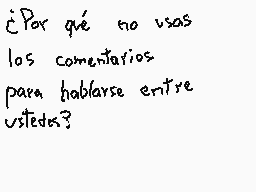 ¿Por qué no usas
los comentarios
para hablarse entre
ustedes?